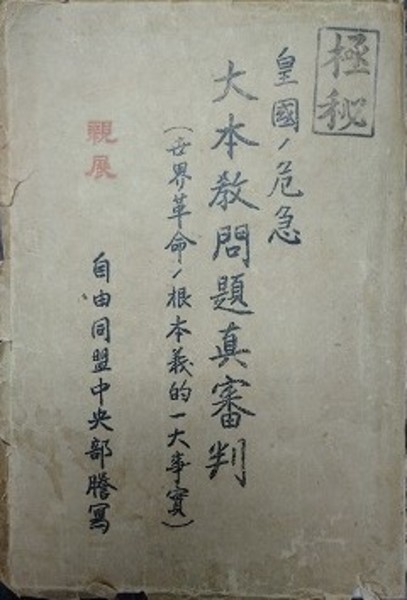 極秘
皇國ノ危急
大本教問題真審判
(世界革命ノ根本義的一大事實)
親展
自由同盟中央部謄寫